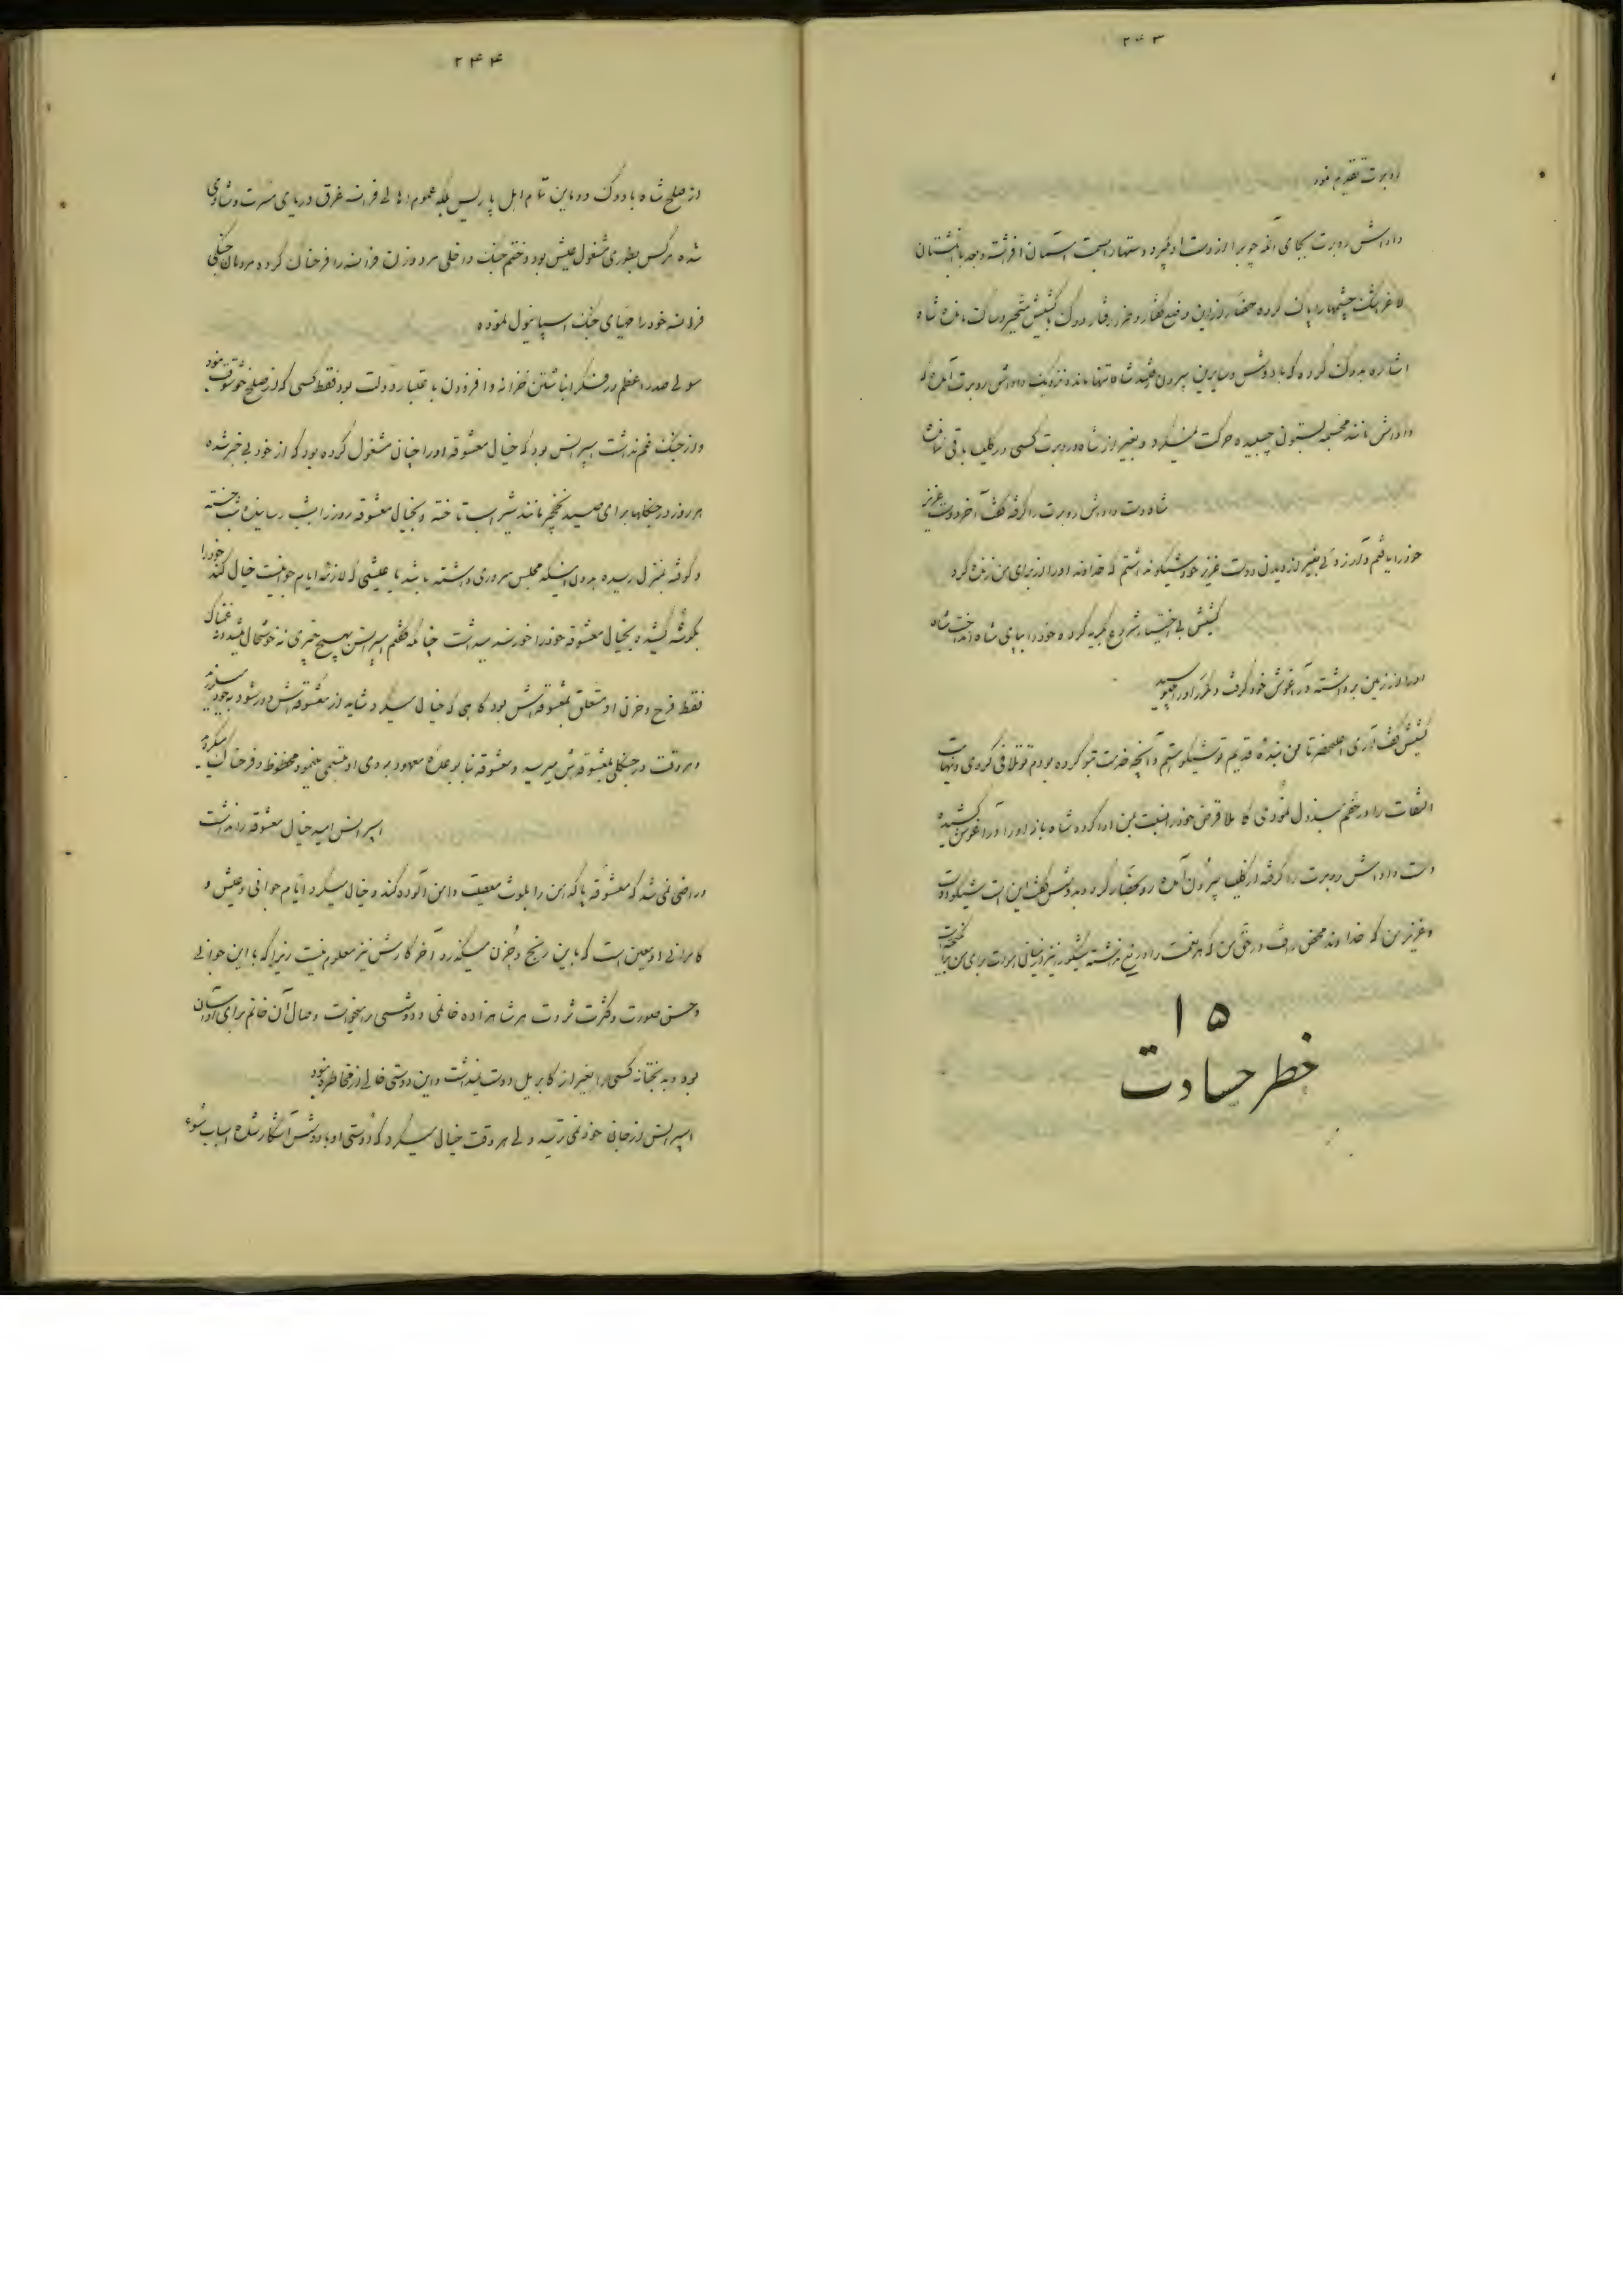 ۲۴۳
روبرت تقدیم نمود
داداش روبرت بجای آنکه چوبرا از دست او بگیرد دستها را بسمت آسمان افراشته و بعد با انگشتان
لاغر اشک چشمها را پاک کرده حضار از این وضع گفتار و طرز رفتار دوک با کشیش متحیر و ساکت مانده شاه
اشاره بدوک کرده که با دوشس و سایرین بیرون رفتند شاه تنها مانده نزدیک داداش روبرت آمد که
داداش مانند مجسمه بستون چسبیده حرکت نمیکرد و بغیر از شاه و روبرت کسی در کلیسا باقی نماند
شاه دست داداش روبرت را گرفته گفت آخر دوست عزیز
خود را یافتم و آرزوئی بغیر از دیدن دوست عزیز خود شیکو نداشتم که خداوند او را از برای من زنده کرد
کشیش بی اختیار شروع بگریه کرده خود را بپای شاه انداخت شاه
او را از زمین برداشته در آغوش خود گرفت و مکرر او را میبوسید
کشیش گفت آری اعلیحضرتا من بنده قدیم تو شیکو هستم و آنچه خدمت بتو کرده بودم تو تلافی کردی و نهایت
التفات را در حقم مبذول نمودی کاملا قرض خود را نسبت بمن ادا کرده شاه باز او را در آغوش کشیده
دست داداش روبرت را گرفته از کلیسا بیرون آمده رو بحضار کرد و بدوشس گفت این است شیکو دوست
و عزیز من که خداوند محض رأفت در حق من که هر نعمت را دریغ نداشته شیکو را نیز
۱۵
خطر حسادت
۲۴۴
از صلح شاه با دوک دو ماین تمام اهل پاریس بلکه عموم اهالی فرانسه غرق دریای مسرت و شادی
شده هرکس بطوری مشغول عیش بود و ختم جنک داخلی مرد و زن فرانسه را فرحناک کرده مردمان جنگی
فرانسه خود را مهیای جنک اسپانیول نموده
سولی صدر اعظم در فکر انباشتن خزانه و افزودن باعتبار دولت بود فقط کسی که از صلح خوشوقت نبود
و از جنک غم نداشت اسپرانس بود که خیال معشوقه او را چنان مشغول کرده بود که از خود بی خبر شده
هر روز در جنگلها برای صید نخجیر مانند شیر اسب تاخته و بخیال معشوقه روز را بشب رسانیده شب خسته
و کوفته بمنزل رسیده بدون اینکه مجلس سروری داشته باشد یا عیشی که لازمه ایام جوانیست خیال کند خود را
بگوشه کشیده بخیال معشوقه خود را خورسند میداشت چنانکه گفتم اسپرانس بهیچ چیزی نه خوشحال میشد و نه غمناک
فقط فرح و حزن او متعلق بمعشوقه‌اش بود گاهی که خیال میکرد شاید از معشوقه‌اش دور شود بخود میلرزید
و هر وقت در جنگلی بمعشوقه‌اش میرسید و معشوقه بنا بوعده معهود بروی او تبسمی مینمود محظوظ و فرحناک میگردید
اسپرانس امید خیال معشوقه را نداشت
و راضی نمی شد که معشوقه پاکدامن را بلوث معصیت دامن آلوده کند و خیال میکرد ایام جوانی و عیش و
کامرانی او معین است که باین رنج و حزن میگذرد آخر کارش نیز معلوم نیست زیرا که با این جوانی
و حسن صورت و کثرت ثروت هر شاهزاده خانمی و دوشسی را میخواست وصال آن خانم برای او آسان
بود و بدبختانه کسی را بغیر از گابریل دوست نمیداشت و این دوستی خالی از مخاطره نبود
اسپرانس از جان خود نمی ترسید ولی هر وقت خیال میکرد که دوستی او با دوشس آشکار شده اسباب سوء